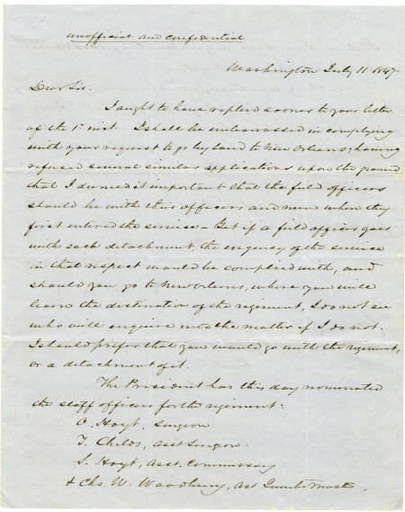 unofficial and confidential
Washington July 11 1847.
Dear Sir.
I ought to have replied sooner to your letter
of the 1st inst. I shall be embarrassed in complying
with your request to go by land to New Orleans, having
refused several similar applications upon the ground
that I deemed it important that the field officers
should be with their officers and men when they
first entered the service - But if a field officer goes
with each detachment, the exigency of the service
in that respect would be complied with, and
should you go to New Orleans, where you will
learn the destination of the regiment, I do not see
who will enquire into the matter if I do not.
I should prefer that you would go with the regiment,
or a detachment of it.
The President has this day nominated
the staff officers for the regiment.
O. Hoyt, surgeon
T. Childs, asst surgeon
S. Hoyt, asst. Commissary
& Chs. W. Woodbury, ast Quarter Master